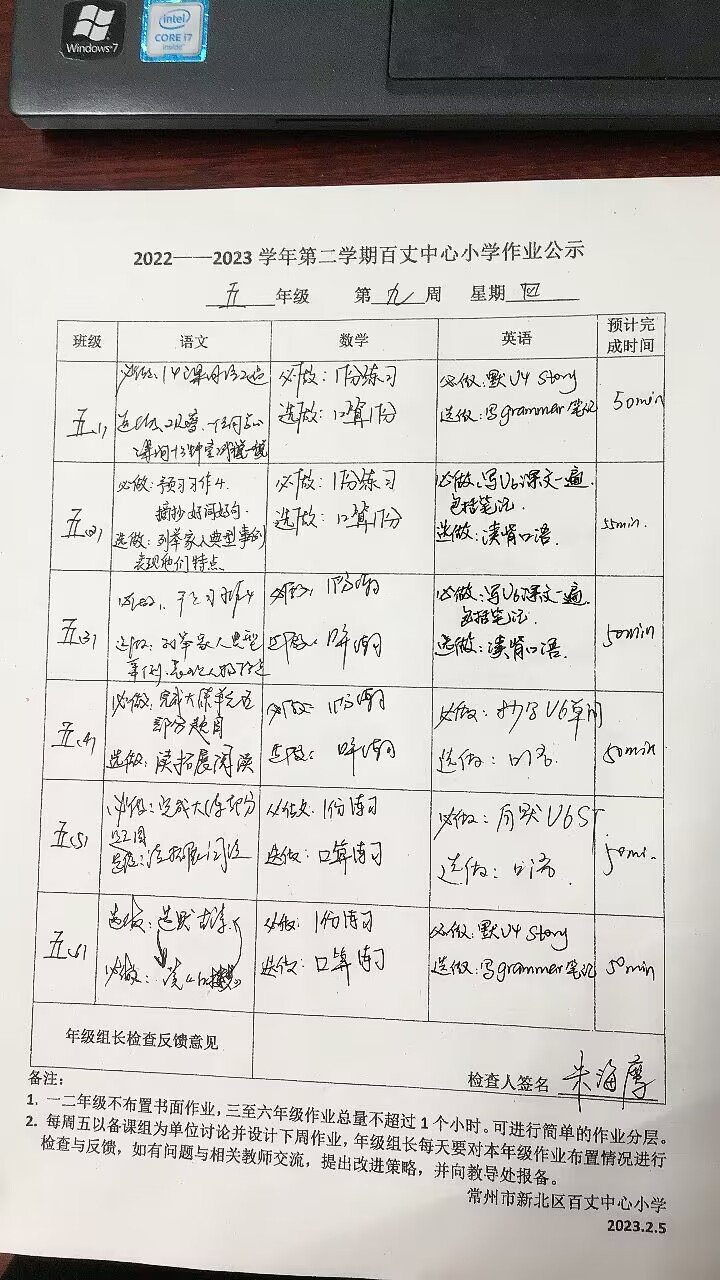 Windows 7
intel
CORE i7
inside
2022——2023 学年第二学期百丈中心小学作业公示
五 年级 第 九 周 星期 四
班级 语文 数学 英语 预计完成时间
五(1)
必做:14课
选做:
必做:1份练习
选做:口算1份
必做:默U4 Story
选做:写grammer笔记
50min
五(2)
必做:预习习作4.
摘抄好词好句.
选做:列举家人典型事例
表现他们特点
必做:1份练习
选做:口算1份
必做:写U6课文一遍.
包括笔记.
选做:读背口语.
55min.
五(3)
必做:预习习作4
选做:列举家人典型
事例.
必做:1份练习
选做:口算练习
必做:写U6课文一遍.
包括笔记.
选做:读背口语.
50min
五(4)
必做:完成大练习单元五
部分题目
选做:读拓展阅读
必做:1份练习
选做:口算练习
必做:抄写U6单词
选做:口语.
50min
五(5)
必做:完成大练部分
选做:读拓展阅读
必做:1份练习
选做:口算练习
必做:U6 ST
选做:口语.
50mi.
五(6)
选做:
必做:读
必做:1份练习
选做:口算练习
必做:默U4 Story
选做:写grammer笔记
50min
年级组长检查反馈意见
检查人签名 朱海摩
备注:
1. 一二年级不布置书面作业,三至六年级作业总量不超过 1 个小时。可进行简单的作业分层。
2. 每周五以备课组为单位讨论并设计下周作业,年级组长每天要对本年级作业布置情况进行
检查与反馈,如有问题与相关教师交流,提出改进策略,并向教导处报备。
常州市新北区百丈中心小学
2023.2.5